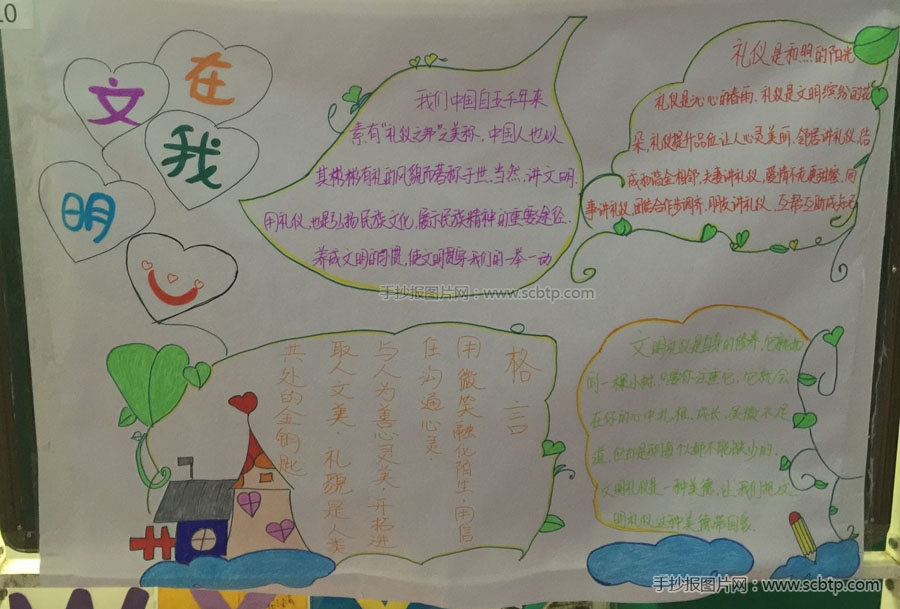 10
文明在我
我们中国自五千年来
素有“礼仪之邦”之美称，中国人也以
其彬彬有礼的风貌而著称于世，当然，讲文明，
用礼仪，也是弘扬民族文化，展示民族精神的重要途径，
养成文明的习惯，使文明贯穿我们的一举一动
礼仪是和煦的阳光
礼仪是沁心的春雨，礼仪是文明缤纷的花
朵，礼仪提升品位让人心灵美丽，邻居讲礼仪，结
成和谐金相邻，夫妻讲礼仪，爱情不老更甜蜜，同
事讲礼仪，团结合作步调齐，朋友讲礼仪，互帮互助成知己
手抄报图片网：www.scbtp.com
格言
用微笑融化陌生，用信
任沟通心灵
与人为善心灵美，开拓进
取人文美，礼貌是人类
共处的金钥匙
文明礼仪是的修养，它就如
同一棵小树，只要你注重它，它就会
在你的心中扎根，成长，
道，但却是我们每个人都不能缺少的，
文明礼仪是一种美德，让我们把文
明礼仪这种美德带回家
手抄报图片网：www.scbtp.com